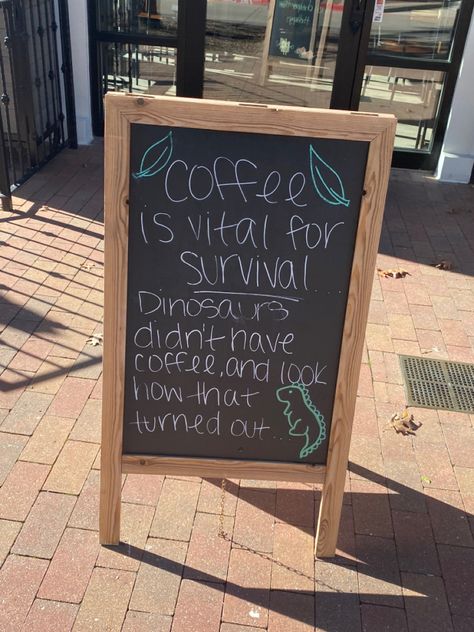 Coffee
is vital for
survival...
Dinosaurs
didn't have
coffee, and look
how that
turned out...